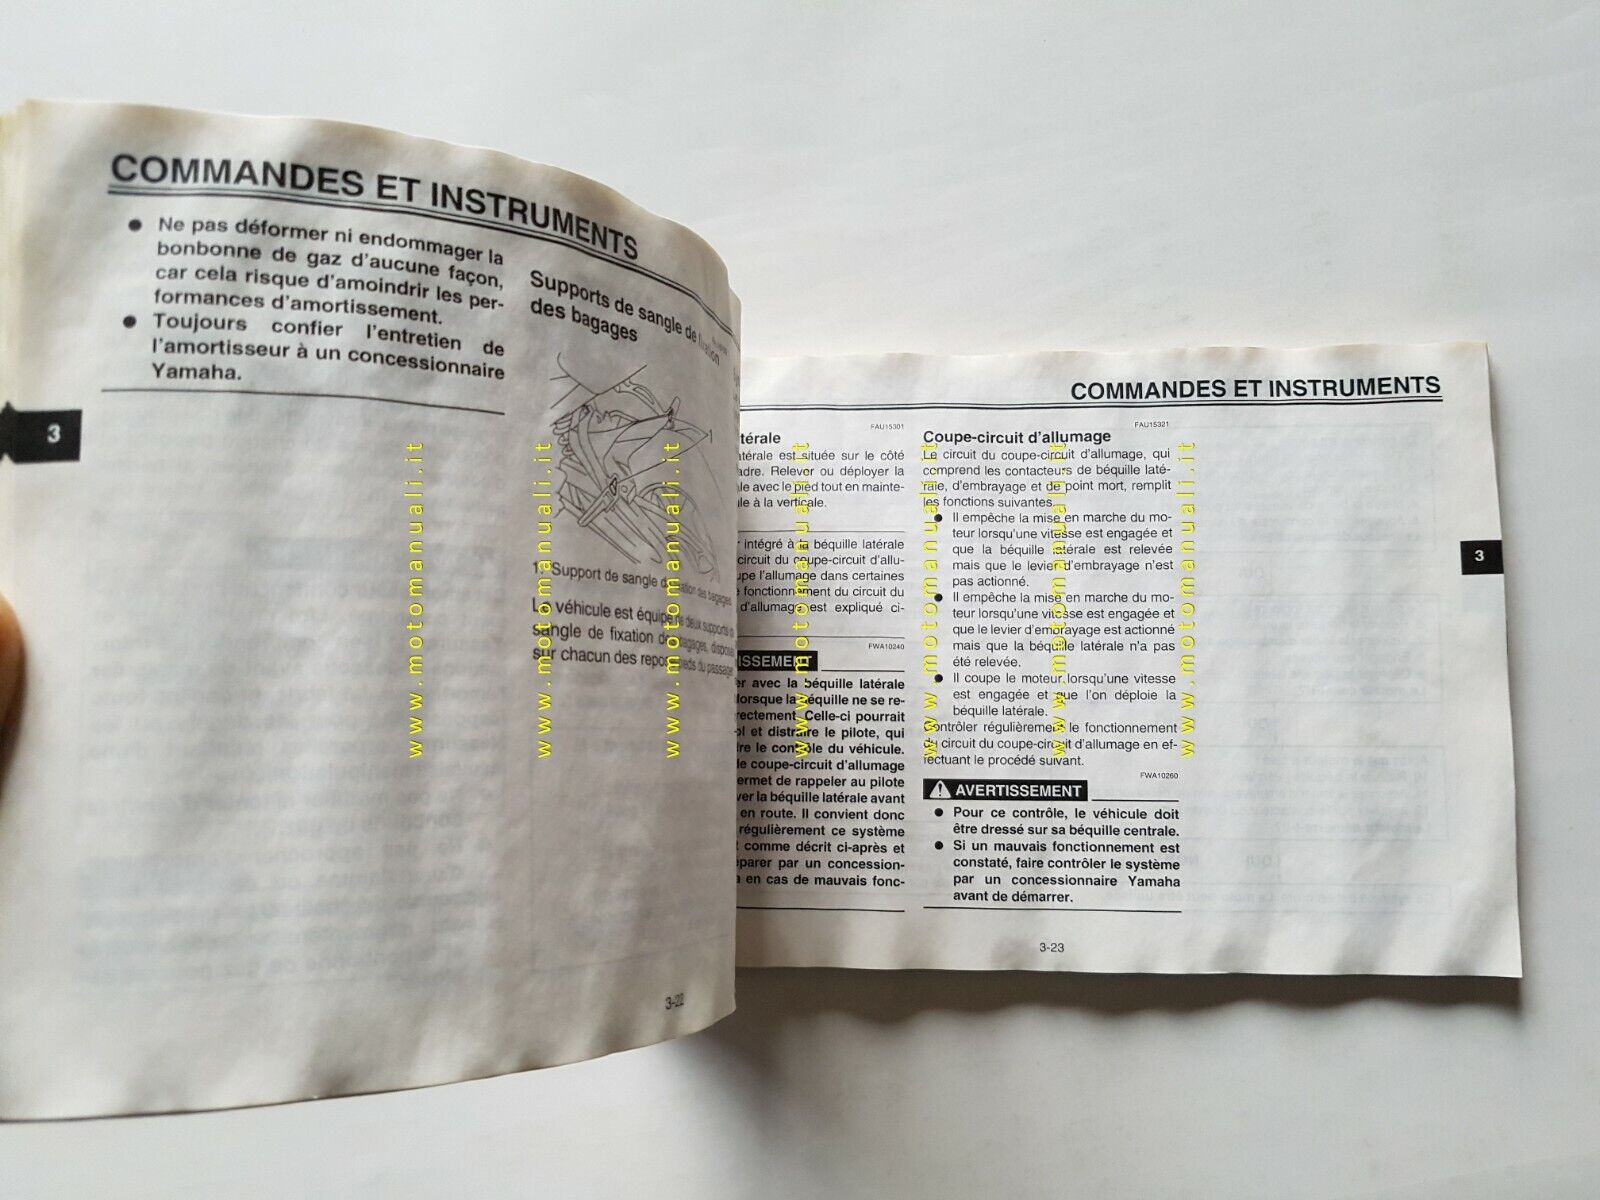 COMMANDES ET INSTRUMENTS
● Ne pas déformer ni endommager la
bonbonne de gaz d'aucune façon,
car cela risque d'amoindrir les per-
formances d'amortissement.
● Toujours confier l'entretien de
l'amortisseur à un concessionnaire
Yamaha.
3
Supports de sangle de fixation
des bagages
1
1. Support de sangle de fixation des bagages
Le véhicule est équipé de deux supports de
sangle de fixation de bagages, disposés
sur chacun des repose-pieds du passager.
3-22
COMMANDES ET INSTRUMENTS
FAU15301
térale
atérale est située sur le côté
adre. Relever ou déployer la
le avec le pied tout en mainte-
ule à la verticale.
r intégré à la béquille latérale
circuit du coupe-circuit d'allu-
upe l'allumage dans certaines
fonctionnement du circuit du
d'allumage est expliqué ci-
FWA10240
ISSEMENT
er avec la béquille latérale
lorsque la béquille ne se re-
rectement. Celle-ci pourrait
ol et distraire le pilote, qui
re le contrôle du véhicule.
le coupe-circuit d'allumage
ermet de rappeler au pilote
ver la béquille latérale avant
en route. Il convient donc
régulièrement ce système
comme décrit ci-après et
éparer par un concession-
en cas de mauvais fonc-
FAU15321
Coupe-circuit d'allumage
Le circuit du coupe-circuit d'allumage, qui
comprend les contacteurs de béquille laté-
rale, d'embrayage et de point mort, remplit
les fonctions suivantes.
● Il empêche la mise en marche du mo-
teur lorsqu'une vitesse est engagée et
que la béquille latérale est relevée
mais que le levier d'embrayage n'est
pas actionné.
● Il empêche la mise en marche du mo-
teur lorsqu'une vitesse est engagée et
que le levier d'embrayage est actionné
mais que la béquille latérale n'a pas
été relevée.
● Il coupe le moteur lorsqu'une vitesse
est engagée et que l'on déploie la
béquille latérale.
Contrôler régulièrement le fonctionnement
du circuit du coupe-circuit d'allumage en ef-
fectuant le procédé suivant.
FWA10260
AVERTISSEMENT
● Pour ce contrôle, le véhicule doit
être dressé sur sa béquille centrale.
● Si un mauvais fonctionnement est
constaté, faire contrôler le système
par un concessionnaire Yamaha
avant de démarrer.
3
3-23
www.motomanuali.it
www.motomanuali.it
www.motomanuali.it
www.motomanuali.it
www.motomanuali.it
www.motomanuali.it
www.motomanuali.it